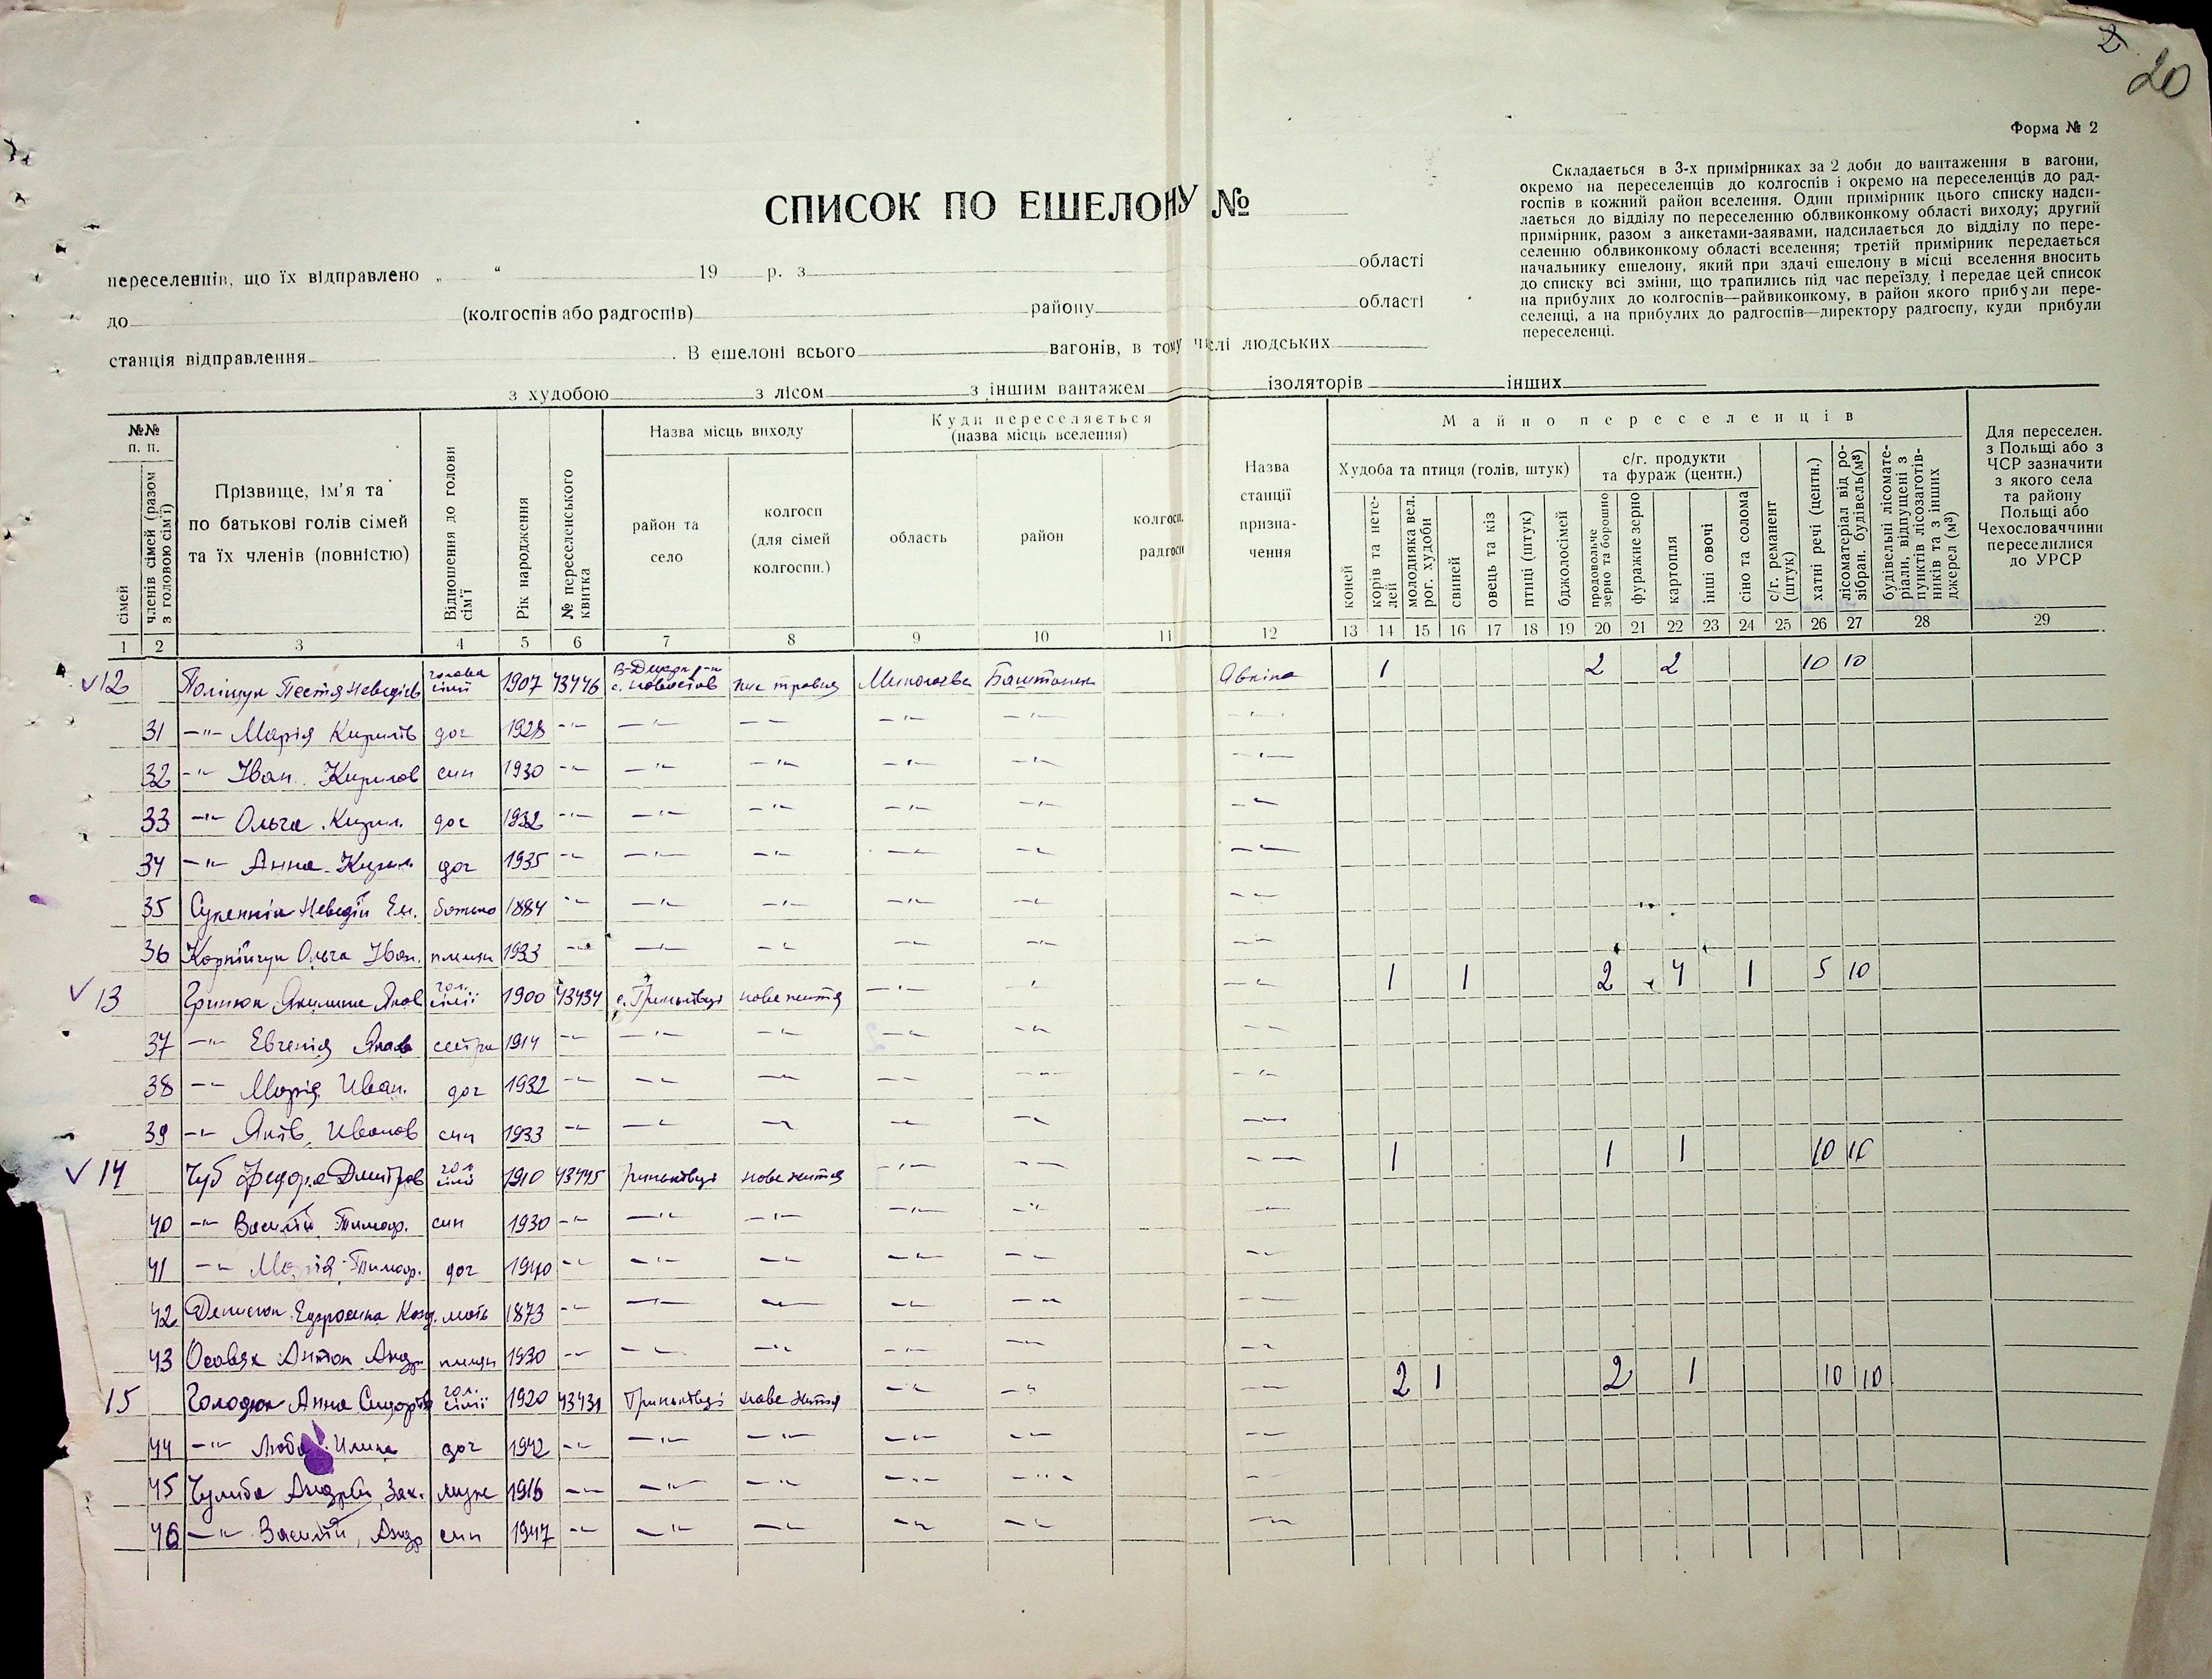 2
20
Форма № 2
Складається в 3-х примірниках за 2 доби до вантаження в вагони,
окремо на переселенців до колгоспів і окремо на переселенців до рад-
госпів в кожний район вселення. Один примірник цього списку надси-
лається до відділу по переселенню облвиконкому області виходу; другий
примірник, разом з анкетами-заявами, надсилається до відділу по пере-
селенню облвиконкому області вселення; третій примірник передається
начальнику ешелону, який при здачі ешелону в місці вселення вносить
до списку всі зміни, що трапились під час переїзду, і передає цей список
на прибулих до колгоспів—райвиконкому, в район якого прибули пере-
селенці, а на прибулих до радгоспів—директору радгоспу, куди прибули
переселенці.
СПИСОК ПО ЕШЕЛОНУ №
переселенців, що їх відправлено „ “ 19 р. з області
до (колгоспів або радгоспів) району області
станція відправлення . В ешелоні всього вагонів, в тому числі людських
з худобою з лісом з іншим вантажем ізоляторів інших
№№ п. п.
сімей
членів сімей (разом з головою сім'ї)
Прізвище, ім'я та
по батькові голів сімей
та їх членів (повністю)
Відношення до голови сім'ї
Рік народження
№ переселенського квитка
Назва місць виходу
район та село
колгосп (для сімей колгоспн.)
Куди переселяється
(назва місць вселення)
область
район
колгосп, радгосп
Назва станції призна-чення
Майно переселенців
Худоба та птиця (голів, штук)
коней
корів та нете-лей
молодняка вел. рог. худоби
свиней
овець та кіз
птиці (штук)
бджолосімей
с/г. продукти та фураж (центн.)
продовольче зерно та борошно
фуражне зерно
картопля
інші овочі
сіно та солома
с/г. реманент (штук)
хатні речі (центн.)
лісоматеріал від ро-зібран. будівель(м³)
будівельні лісомате-ріали, відпущені з пунктів лісозаготів-ників та з інших джерел (м³)
Для переселен. з Польщі або з ЧСР зазначити з якого села та району Польщі або Чехословаччини переселилися до УРСР
1 2 3 4 5 6 7 8 9 10 11 12 13 14 15 16 17 18 19 20 21 22 23 24 25 26 27 28 29
12 Поліщук голова сімї 1907 43446 Миколаєвс Баштанськ Явкіно 1 2 2 10 10
31 -"- Марія Кирилів доч 1928 -"- -"- -"- -"- -"- -"-
32 -"- Іван Кирилов син 1930 -"- -"- -"- -"- -"- -"-
33 -"- Ольга Кирил. доч 1932 -"- -"- -"- -"- -"- -"-
34 -"- Анна Кирил доч 1935 -"- -"- -"- -"- -"- -"-
35 батько 1884 -"- -"- -"- -"- -"- -"-
36 Корнійчук Ольга Іван. племян 1933 -"- -"- -"- -"- -"- -"-
13 Гринюк Якилина Яков гол. сімії 1900 43434 с. Гриньківці нове життя -"- -"- -"- 1 1 2 4 1 5 10
37 -"- Евгенія Яков сестра 1914 -"- -"- -"- -"- -"- -"-
38 -"- Марія Иван. доч 1932 -"- -"- -"- -"- -"- -"-
39 -"- Яків Иванов син 1933 -"- -"- -"- -"- -"- -"-
14 Чуб Федора Дмитров гол сімї 1910 43445 Гриньківці нове життя -"- -"- -"- 1 1 1 10 10
40 -"- Василій Тимоф. син 1930 -"- -"- -"- -"- -"- -"-
41 -"- Марія Тимоф. доч 1940 -"- -"- -"- -"- -"- -"-
42 Денисюк мать 1873 -"- -"- -"- -"- -"- -"-
43 Антон Андр племян 1930 -"- -"- -"- -"- -"- -"-
15 Голодюк Анна Сидорів гол. сімії 1920 43431 Гриньківці нове життя -"- -"- -"- 2 1 2 1 10 10
44 -"- Люба доч 1942 -"- -"- -"- -"- -"- -"-
45 Андрій Зах. 1916 -"- -"- -"- -"- -"- -"-
46 -"- Василій, Андр син 1947 -"- -"- -"- -"- -"- -"-